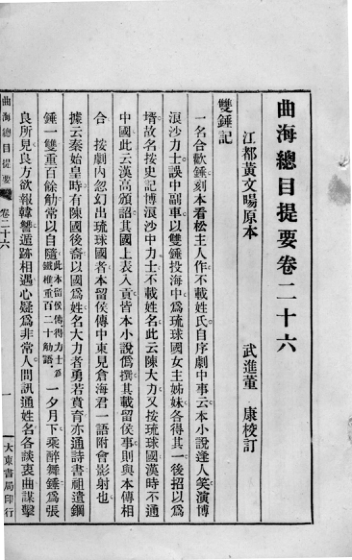 曲海總目提要卷二十六
江都黃文暘原本
武進董 康校訂
雙錘記
一名合歡錘刻本看松主人作不載姓氏自序劇中事云本小說逢人笑演博
浪沙力士誤中副車以雙錘投海中爲琉球國女主姊妹各得其一後招以爲
壻故名按史記博浪沙中力士不載姓名此云陳大力又按琉球國漢時不通
中國此云漢高頒詔其國上表入貢皆本小說僞撰其載留侯事則與本傳相
合 按劇內忽幻出琉球國者本留侯傳中東見倉海君一語附會影射也
據云秦始皇時有陳國後裔以國爲姓名大力者勇若賁育亦通詩書祖遺鋼
錘一雙重百餘觔常以自隨此本留侯傳得力士爲鐵椎重百二十觔語 一夕月下乘醉舞錘爲張
良所見良方欲報韓讐遁跡相遇心疑爲非常人問訊通姓名各談衷曲謀擊
曲海總目提要 卷二十六
一
大東書局印行